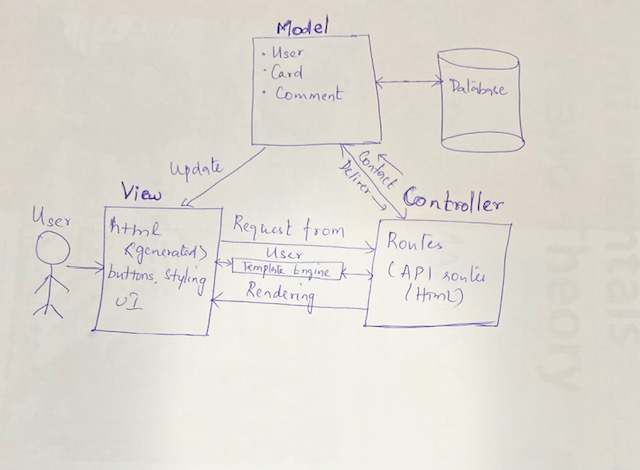 Model
• User
• Card
• Comment
Database
Update
Contact
Deliver
View
Controller
User
html
<generated>
buttons, styling
UI
Request from
User
Template Engine
Rendering
Routes
(API routes
(Html)